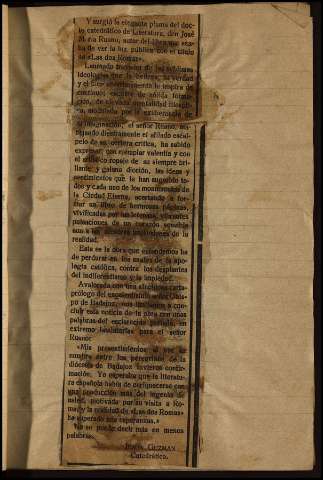 Y surgió la elegante pluma del doc-
to catedrático de Literatura, don José
María Rusno, autor del libro que aca-
ba de ver la luz pública con el título
de «Las dos Romas».
ideológicas que la
y el
continuo, escritor de sólida
ción, de elevada mentalidad
da, por la exuberante de
imaginación, el señor Rusno, ma-
nejando diestramente el afilado escal-
pelo de su certera crítica, ha sabido
expresar, con ejemplar valentía y con
el artístico ropaje de su siempre bri-
llante y galana dicción, las ideas y
sentimientos que le han sugerido to-
dos y cada uno de los monumentos de
la Ciudad Eterna, acertando a for-
mar un libro de hermosas páginas,
vivificadas por las intensas, vibrantes
palpitaciones de un corazón sensible
a las impresiones de la
realidad.
Esta es la obra que
de perdurar en los anales de la apo-
logía católica, contra los desplantes
del indiferentismo y la impiedad.
Avalorada con una carta-
prólogo del Obis-
po de Badajoz, nos limitamos a con-
cluir esta noticia de la obra con unas
palabras del esclarecido prelado, en
extremo laudatorias para el señor
Rusno:
«Mis presentimientos al ver su
nombre entre los peregrinos de la
diócesis de Badajoz tuvieron confir-
mación. Yo esperaba que la literatu-
ra española había de enriquecerse con
una producción más del ingenio de
usted, motivada por su visita a Ro-
ma, y la realidad de «Las dos Romas»
ha superado mis esperanzas.»
No se puede decir más en menos
palabras.
GUZMAN
Catedrático.